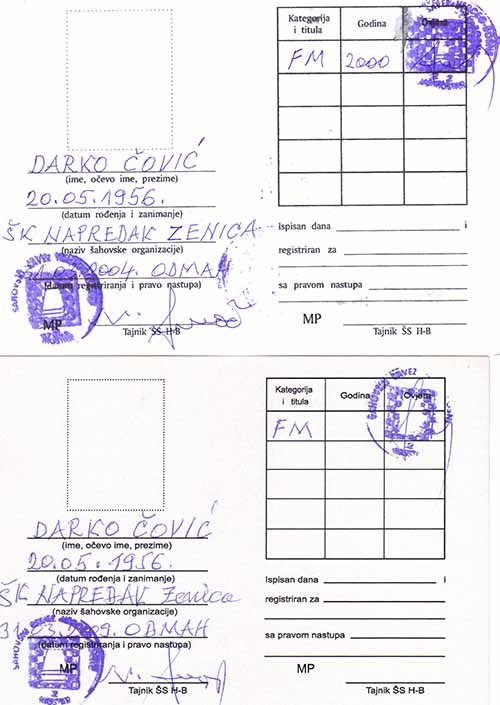 Kategorija
i titula
Godina
Ovjera
FM
2000
DARKO ČOVIĆ
(ime, očevo ime, prezime)
20.05.1956.
(datum rođenja i zanimanje)
ŠK NAPREDAK ZENICA
(naziv šahovske organizacije)
2004. ODMAH
(datum registriranja i pravo nastupa)
MP
Tajnik ŠS H-B
Ispisan dana i
registriran za
sa pravom nastupa
MP
Tajnik ŠS H-B
Kategorija
i titula
Godina
Ovjera
FM
DARKO ČOVIĆ
(ime, očevo ime, prezime)
20.05.1956.
(datum rođenja i zanimanje)
ŠK NAPREDAK Zenica
(naziv šahovske organizacije)
31.03.2009. ODMAH
(datum registriranja i pravo nastupa)
MP
Tajnik ŠS H-B
Ispisan dana i
registriran za
sa pravom nastupa
MP
Tajnik ŠS H-B